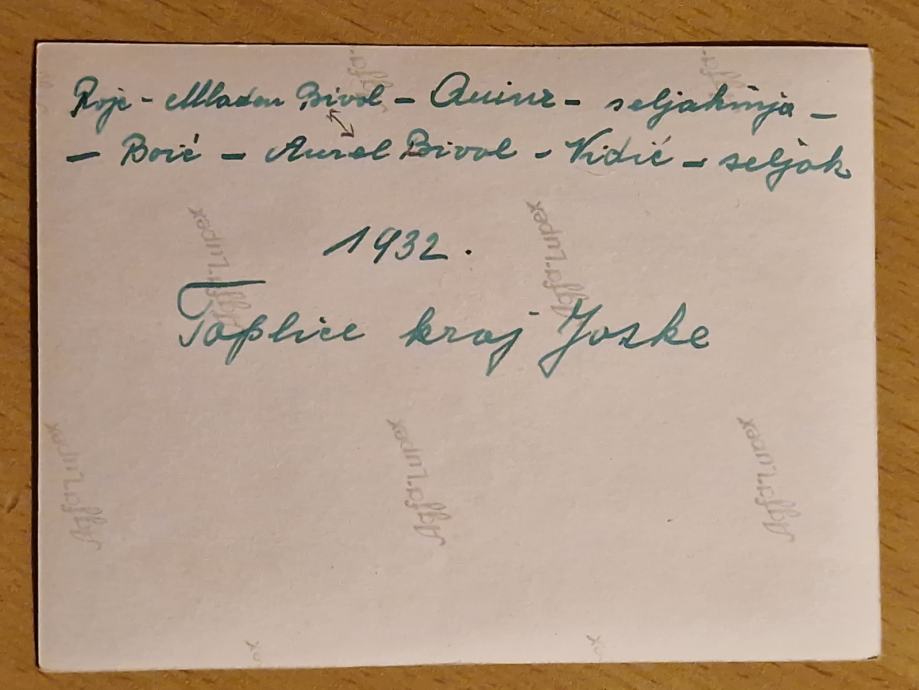 Roje - Mladen Bivol - Quinz - seljakinja -
- Borić - Aurel Bivol - Vidić - seljak
1932.
Toplice kraj Joske
Agfa-Lupex
Agfa-Lupex
Agfa-Lupex
Agfa-Lupex
Agfa-Lupex